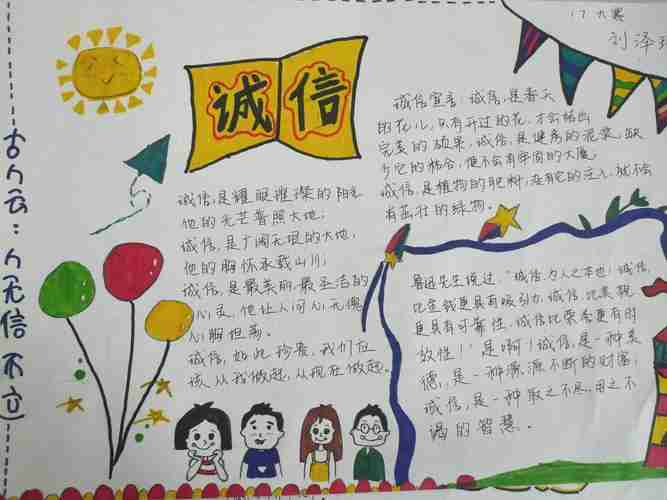 17九寒
刘泽
诚信
古人云：人无信不立
诚信宣言：诚信，是春天
的花儿，只有开过的花，才会结出
完美的硕果，诚信，是健身的泥浆，缺
少它的粘合，便不会有牢固的大厦。
诚信，是植物的肥料，没有它的注入，就不会
有茁壮的绿物。
诚信，是耀眼璀璨的阳光
他的光芒普照大地；
诚信，是广阔无垠的大地，
他的胸怀承载山川；
诚信，是最美丽最圣洁的
心灵，他让人问心无愧
心胸坦荡。
诚信，如此珍贵，我们应
该从我做起，从现在做起。
鲁迅先生说过："诚信，为人之本也！诚信，
比金钱更具有吸引力，诚信，比美貌
更具有可靠性，诚信比荣誉更有时
效性！"是啊！诚信，是一种美
德，是一种源源不断的财富；
诚信，是一种取之不尽，用之不
竭的智慧。